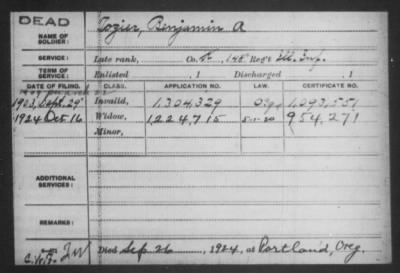 DEAD
NAME OF SOLDIER: Tozier, Benjamin A
SERVICE: Late rank, Co. 145 Reg't Ill. Inf.
TERM OF SERVICE: Enlisted , 1 Discharged , 1
DATE OF FILING. CLASS. APPLICATION NO. LAW. CERTIFICATE NO.
1903, Sept. 29 Invalid, 1,304,329 1,093,551
1924 Oct 16 Widow, 1,224,715 5-1-20 954,271
Minor,
ADDITIONAL SERVICES:
REMARKS:
Died Sep. 26, 1924, at Portland, Oreg.